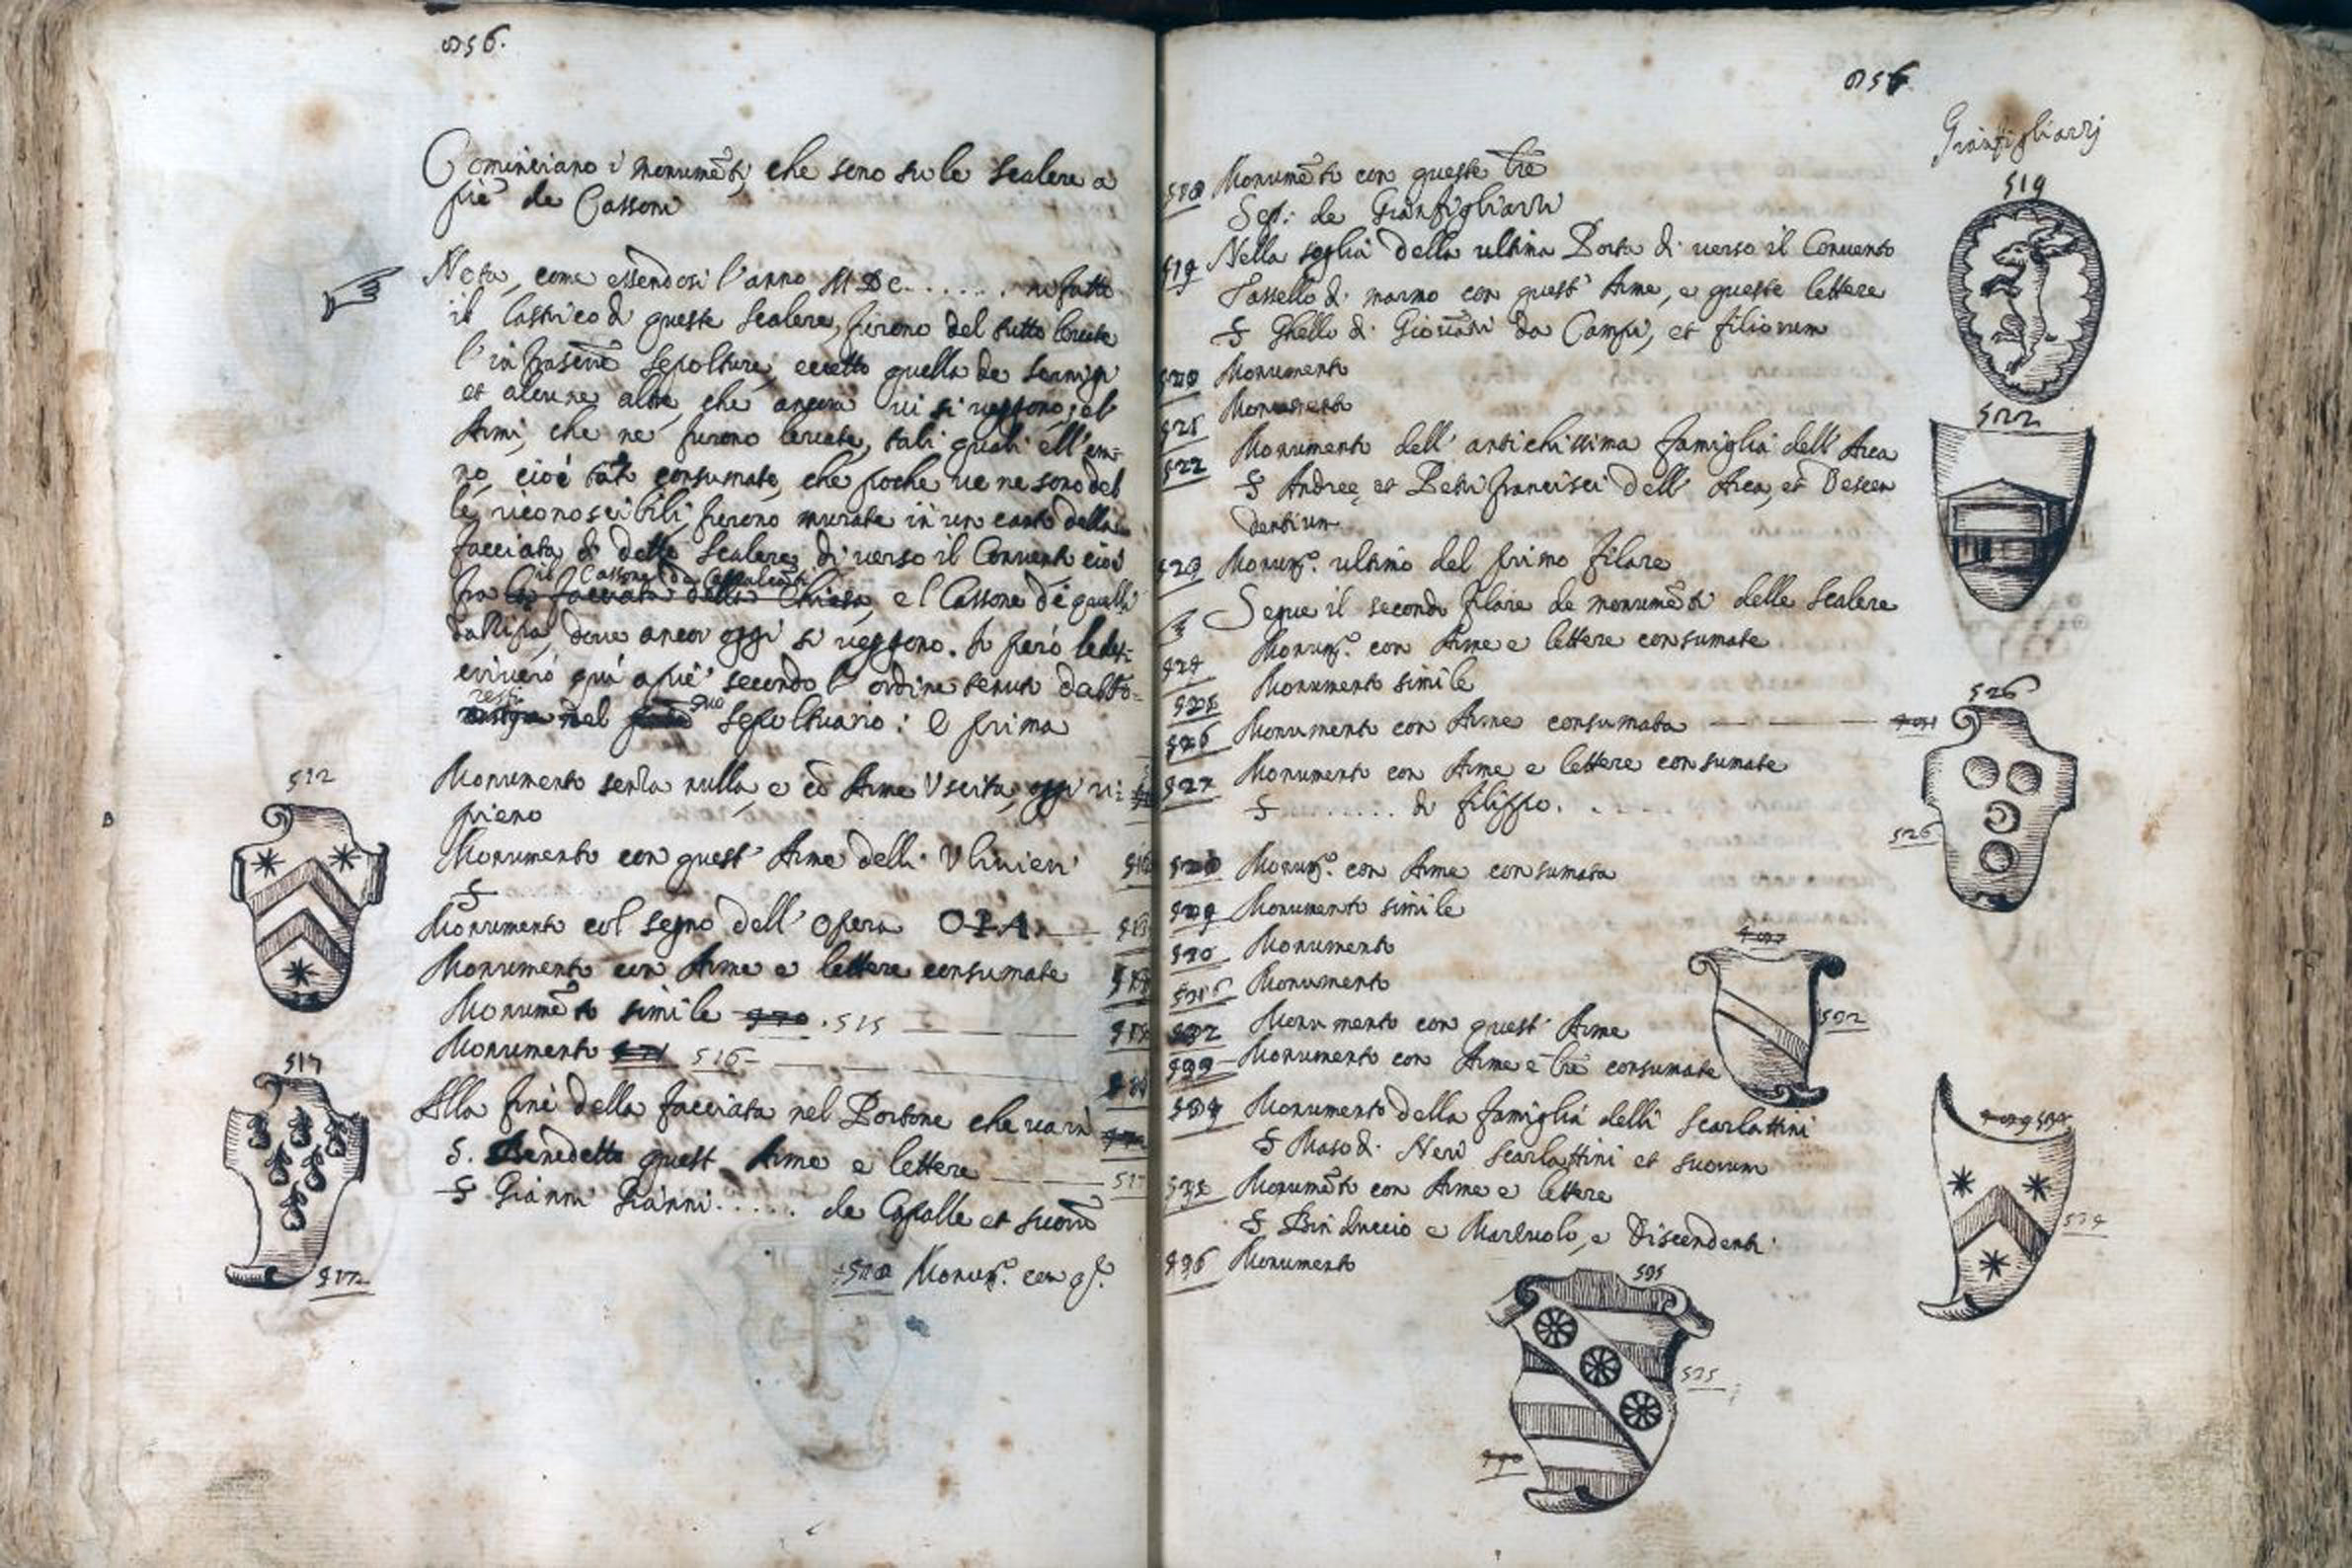 856.
Cominciano i monumēti, che sono su le scalere a
piè de Cassoni
Nota, come essendosi l'anno MDC...... rifatto
il lastrico di queste scalere, furono del tutto levate
l'infrascrē sepolture, eccetto quella de
et alcune altre, che ancora vi si veggono; et
Armi, che ne furono levate, tali quali ell'era-
no, cioè tāt consumate, che poche ve ne sono del
le riconoscibili, furono murate in un canto della
facciata di dette scalere, di verso il Convento cioè
il Cassone de
fra la facciata della Chiesa, e l Cassone de quelli
dallisa, dove ancor oggi si veggono. Io però le des-
criverò qui a piè secondo l'ordine tenuto
nel suo sepoltuario: e prima
Monumento senza nulla, e cō Arme Uscita, oggi ri-
pieno
512
Monumento con quest' Arme delli Ulivieri
S
Monumento col segno dell' Opera OPA.
Monumento con Arme e lettere consumate
Monumēto simile 515
Monumento 516
517
Alla fine della facciata nel Portone che va in
S. Benedetto quest Arme e lettere 517
S Gianni Gianni..... de Capalle et suorū
518 Monum.º con qs.
856
Gianfigliazzi
518 Monumēto con queste lrē
Sep: de Gianfigliazzi
519
519 Nella soglia della ultima Porta di verso il Convento
Tassello di marmo con quest' Arme, e queste lettere
S Ghello di Giovāni da Campi, et filiorum
520 Monumento
521 Monumento
522
522 Monumento dell' antichissima famiglia dell' Arca
S Andree et Petri francisci dell' Arca, et Descen
dentium
523 Monum.º ultimo del primo filare
Segue il secondo filare de monumēti delle scalere
524 Monum.º con Arme e lettere consumate
525 Monumento simile
526
526 Monumento con Arme consumata
527 Monumento con Arme e lettere consumate
S ...... di filippo. . . . .
526
528 Monum.º con Arme consumata
529 Monumento simile
530 Monumento
531 Monumento
532 Monumento con quest' Arme
532
533 Monumento con Arme e lrē consumate
534 Monumento della famiglia delli Scarlattini
S Maso di Neri Scarlattini et suorum
534
535 Monumēto con Arme e lettere
S Bin Duccio e Martuolo, e Discendenti
536 Monumento
535
535